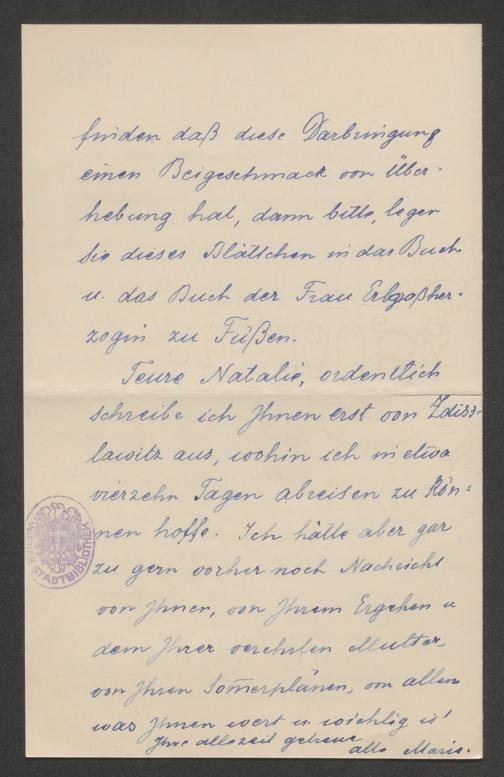 finden daß diese Darbringung
einen Beigeschmack von Über-
hebung hat, dann bitte, legen
Sie dieses Blättchen in das Buch
u. das Buch der Frau Erbgroßher-
zogin zu Füßen.
Teure Natalie, ordentlich
schreibe ich Ihnen erst von Zdiss-
lawitz aus, wohin ich in etwa
vierzehn Tagen abreisen zu kön-
nen hoffe. Ich hätte aber gar
zu gern vorher noch Nachricht
von Ihnen, von Ihrem Ergehen u
dem Ihrer verehrten Mutter,
von Ihren Som̅erplänen, von allem
was Ihnen wert u. wichtig ist
Ihre allezeit getreue
alte Marie.
WIENER STADTBIBLIOTHEK